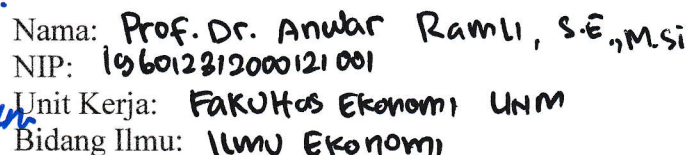 Nama: Prof. Dr. Anwar Ramli, S.E., M.Si
NIP: 196012312000121001
Unit Kerja: Fakultas Ekonomi UNM
Bidang Ilmu: Ilmu Ekonomi